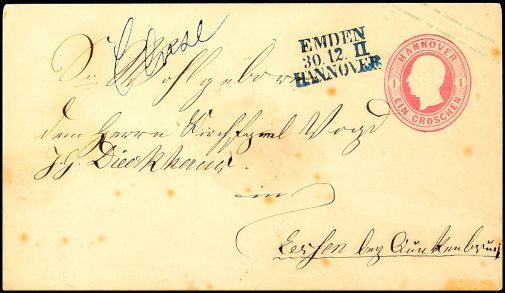 EMDEN
30. 12. II
HANNOVER
HANNOVER
1 1
EIN GROSCHEN
Sr Wohlgeboren
dem Herrn Kirchspiel Vogt
J. G. Dieckhaus
in
bey Quakenbrück